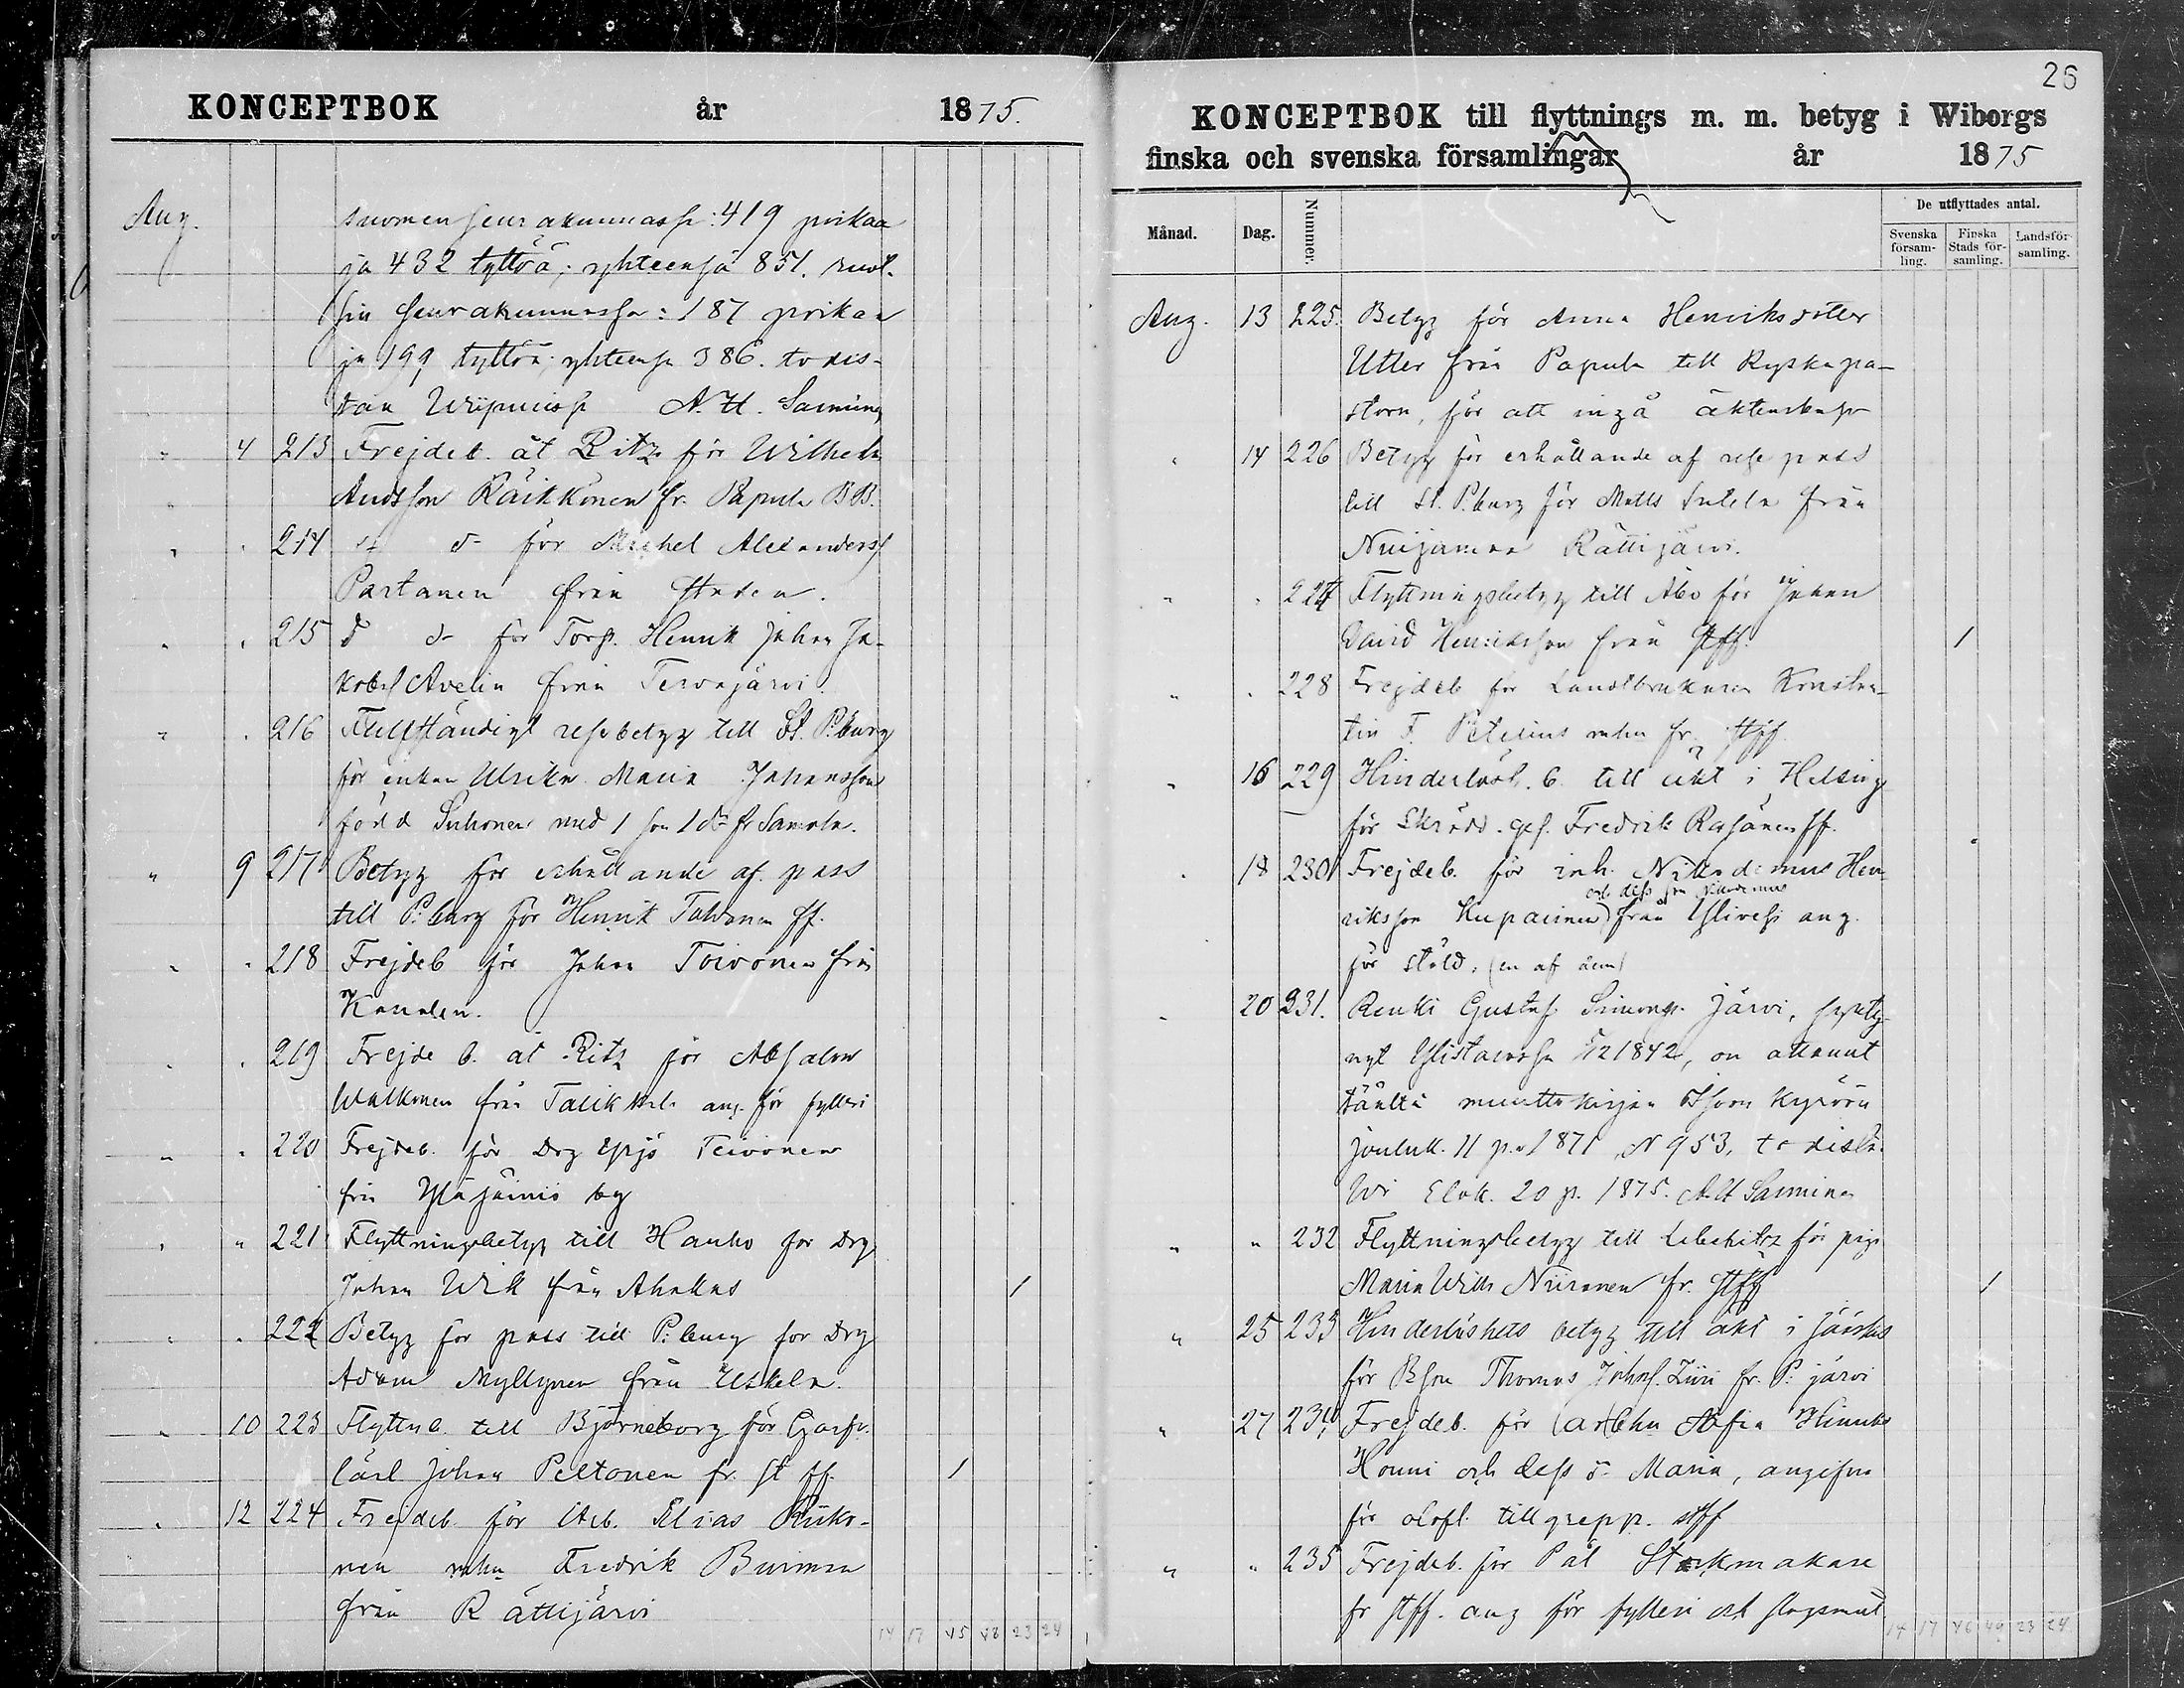 KONCEPTBOK år 1875.
Aug. suomen seurakunnassa: 419 poikaa
ja 432 tyttöä; yhteensä 851. ruot-
sin seurakunnassa: 187 poikaa
ja 199 tyttöä; yhteensä 386. todis-
taa Wiipurissa A. H. Saminen
" 4 213 Frejdeb. åt Ritz för Wilhelm
Andsson Räikkönen fr. Papula BB.
" " 214 d d- för Michel Alexanderss
Partanen från staden.
" " 215 d d- för Torp. Henrik Johan Ja-
kobss Avelin från Tervajärvi.
" " 216 Fullständigt resebetyg till St. P:burg
för enkan Ulrika Maria Johansson
född Suhonen med 1 son 1 dr fr Samola.
" 9 217 Betyg för erhållande af pass
till P:burg för Henrik Talvanen ff.
" " 218 Frejdeb för Johan Toivonen från
Kanalen.
" " 219 Frejdeb. åt Ritz för Absalon
Walkonen från Talikkala ang. för fylleri
" " 220 Frejdeb. för Drg Yrjö Toivonen
från Yläjärvis by
" " 221 Flyttningsbetyg till Hauho för Drg
Johan Wilk från Ahokas 1
" " 222 Betyg för pass till P:burg för Drg
Adam Myllynen från Uskela.
" 10 223 Flyttn b. till Björneborg för Garfv.
lärl Johan Peltonen fr. st ff. 1
" 12 224 Frejdeb för Arb. Elias
nen Fredrik Buiman
från Rättijärvi
14 17 45 48 23 24
26
KONCEPTBOK till flyttnings m. m. betyg i Wiborgs
finska och svenska församlingar år 1875
Månad. Dag. Nummer. De utflyttades antal.
Svenska försam-ling. Finska Stads för-samling. Landsför-samling.
Aug. 13 225. Betyg för Anna Henriksdotter
Utter från Papula till Ryska pa-
storn, för att ingå äktenskap
" 14 226 Betyg för erhållande af respass
till St. P.burg för Matts från
Nuijamaa Rättijärvi.
" " 227 Flyttningsbetyg till Åbo för Johan
David Henriksson från stff. 1
" " 228 Frejdeb för Landtbrukaren Konstan-
tin F. Petelius fr. stff.
" 16 229 Hinderlösh. b. till äkt i Helsing
för Skrädd. ges. Fredrik Rasänen ff.
" 18 230 Frejdeb. för inh. Nikodemus Hen-
och dess son Nikodemus
riksson Kupariinen från Ylivesi ang.
för stöld. (en af dem)
" 20 231. Renki Gustaf Simonp. Järvi, synty-
nyt Ylistarossa 1842, on ottanut
täältä muuttokirjan Ison kyröön
jouluk. 11 p. 1871, N 953, todista.
Wi Elok. 20 p. 1875. A. H. Saminen
" " 232 Flyttningsbetyg till Libelitz för pig.
Maria Wilh. Niiranen fr. stff 1
" 25 233 Hinderlöshets betyg till äkt i Jääskis
för Bson Thomas Johnss. Ziiri fr. P. järvi
" 27 234 Frejdeb. för (ar)bhu Sofia Hinriks
Honni och dess d. Maria, angifna
för olofl. tillgrepp. stff
" " 235 Frejdeb. för Pål Stockmakare
fr stff. ang för fylleri och slagsmål
14 17 46 49 23 24